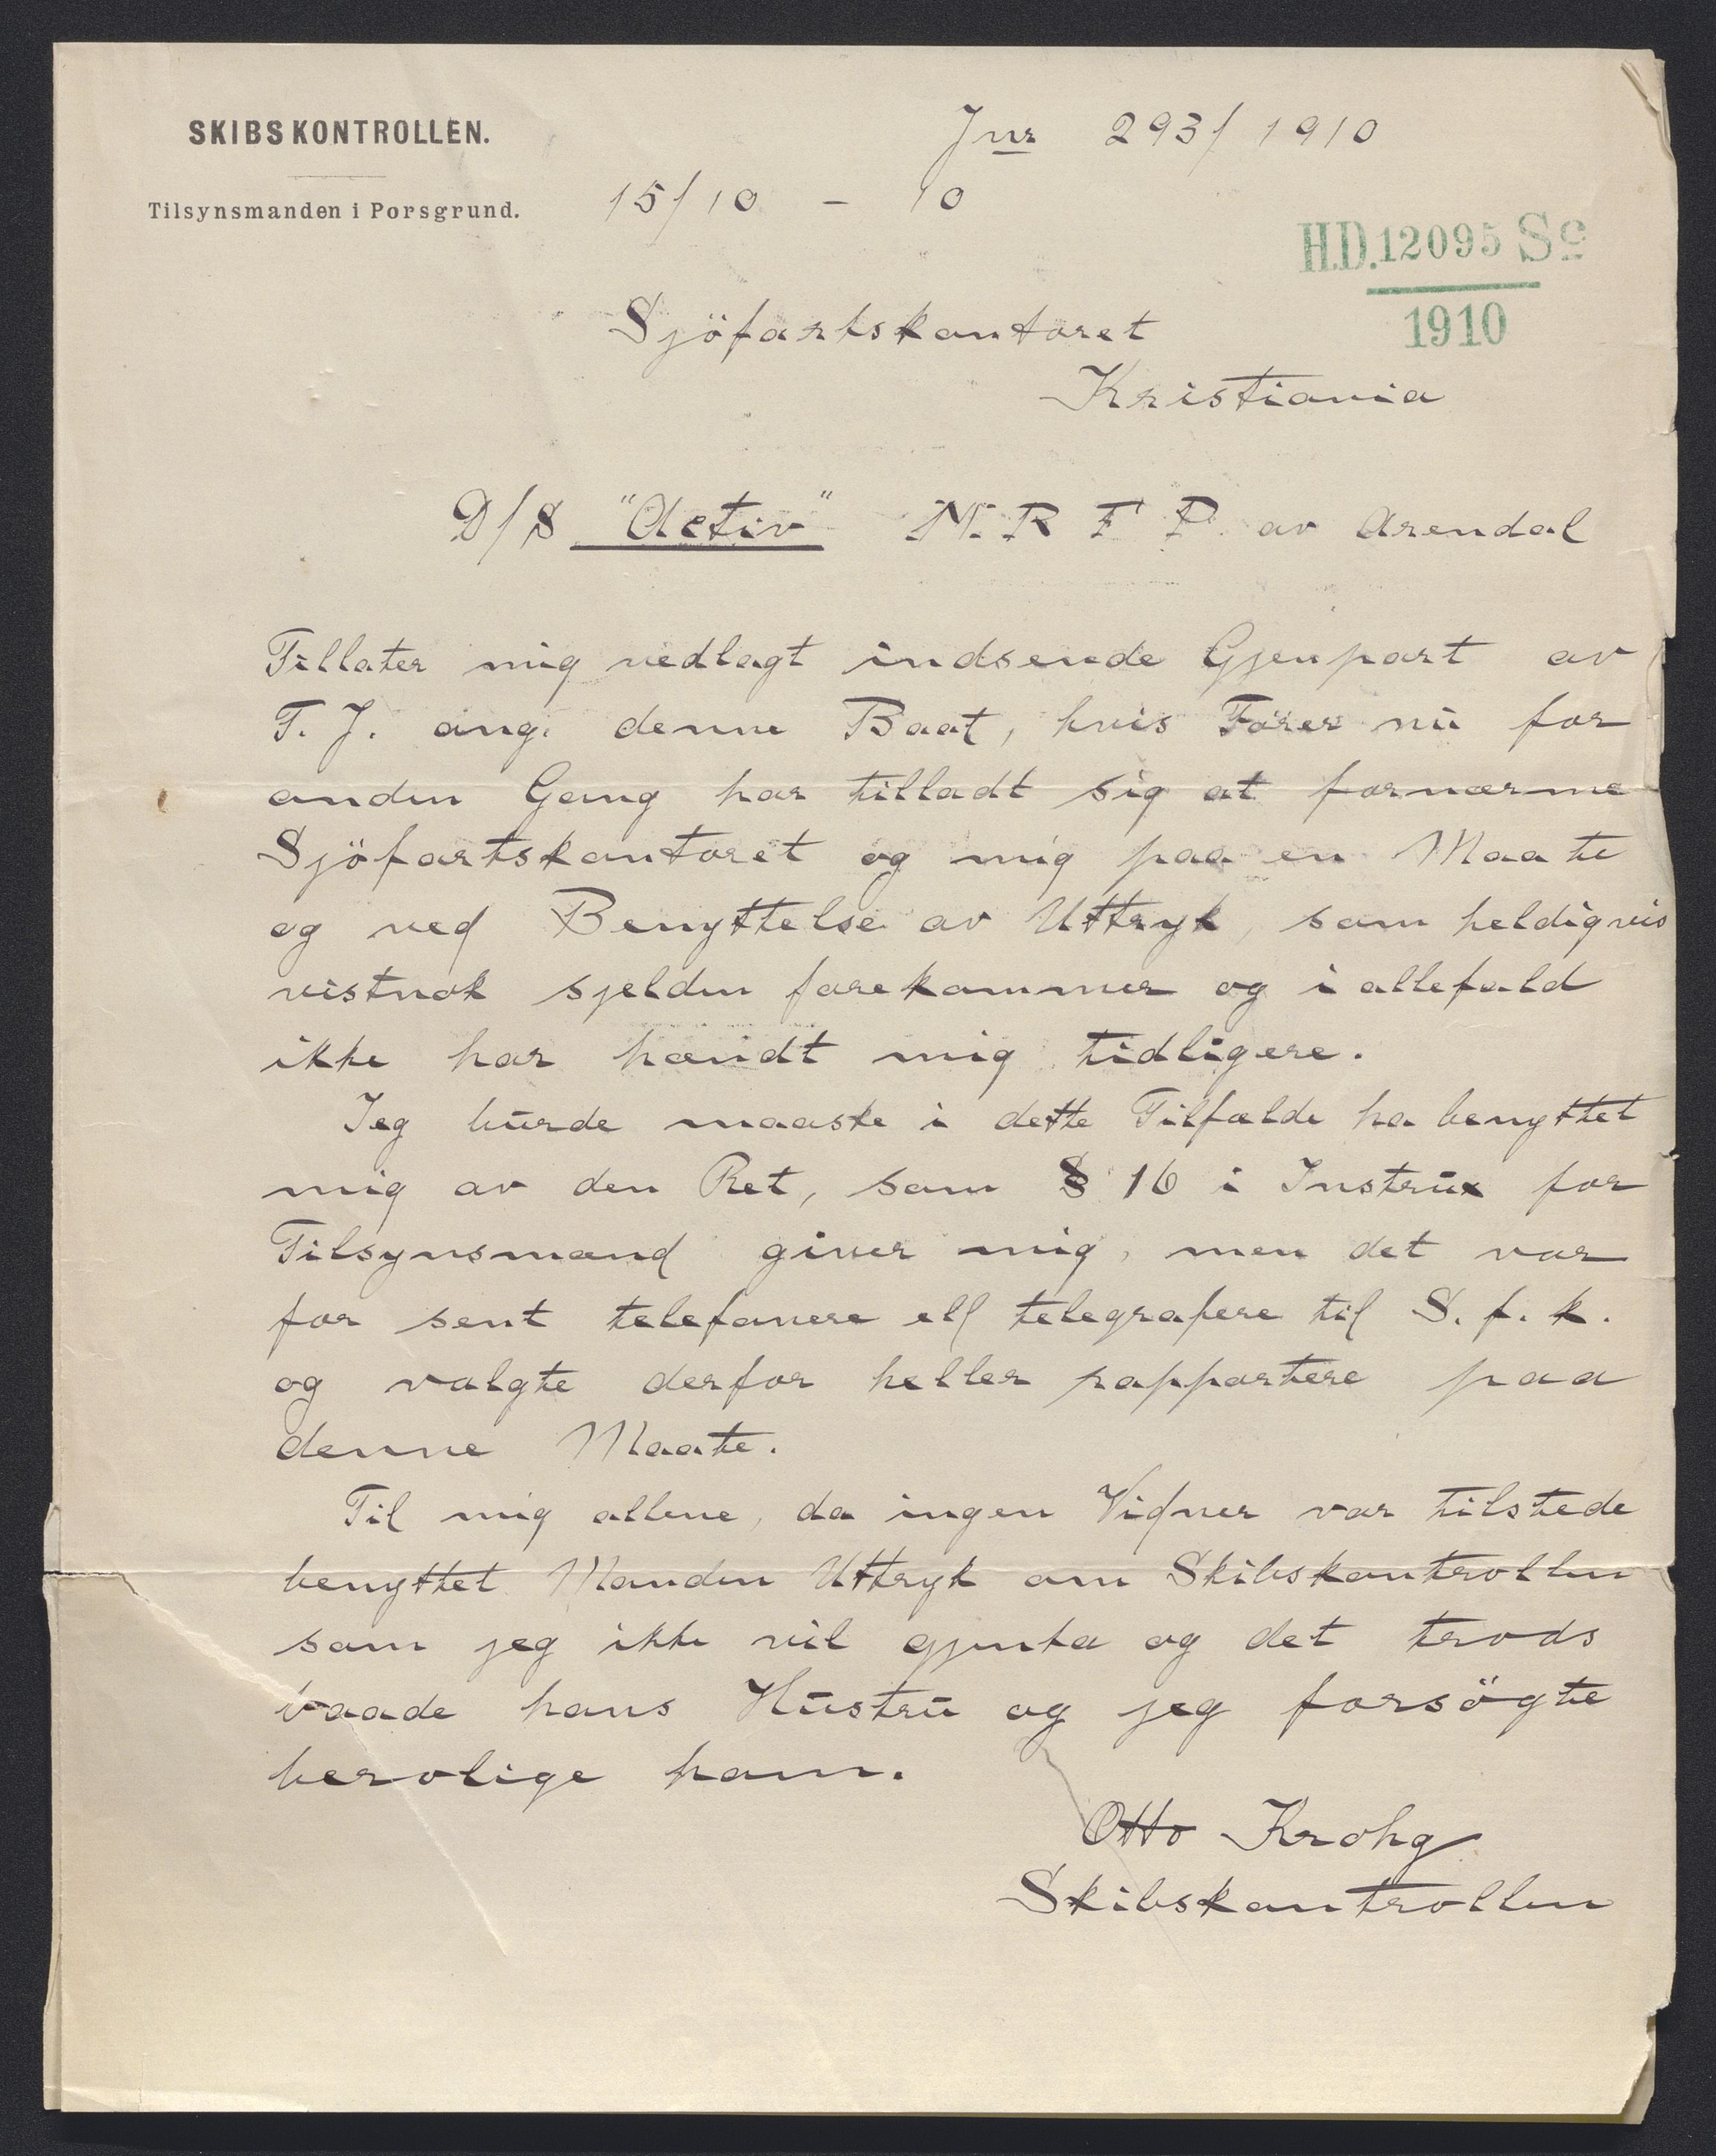 SKIBSKONTROLLEN.
Tilsynsmanden i Porsgrund.
Jnr 293/1910
15/10 - 10
H.D. 12095 Sc
1910
Sjöfartskontoret
Kristiania
D/S "Activ" M. R. F. P. av Arendal
Tillater mig vedlagt indsende Gjenpart av
T. J. ang. denne Baat, hvis Förer nū for
anden Gang har tilladt sig at fornærme
Sjöfartskontoret og mig paa en Maate
og ved Benyttelse av Uttryk, som heldigvis
vistnok sjelden forekommer og i allefald
ikke har hændt mig tidligere.
Jeg būrde maaske i dette Tilfælde ha benyttet
mig av den Ret, som § 16 i Instrūx for
Tilsynsmænd giver mig, men det var
for sent telefonere ell telegrafere til S. f. k.
og valgte derfor heller rapportere paa
denne Maate.
Til mig allene, da ingen Vidner var tilstede
benyttet Manden Uttryk om Skibskontrollen
som jeg ikke vil gjenta og det trods
baade hans Hūstrū og jeg forsögte
berolige ham.
Otto Krohg
Skibskontrollen